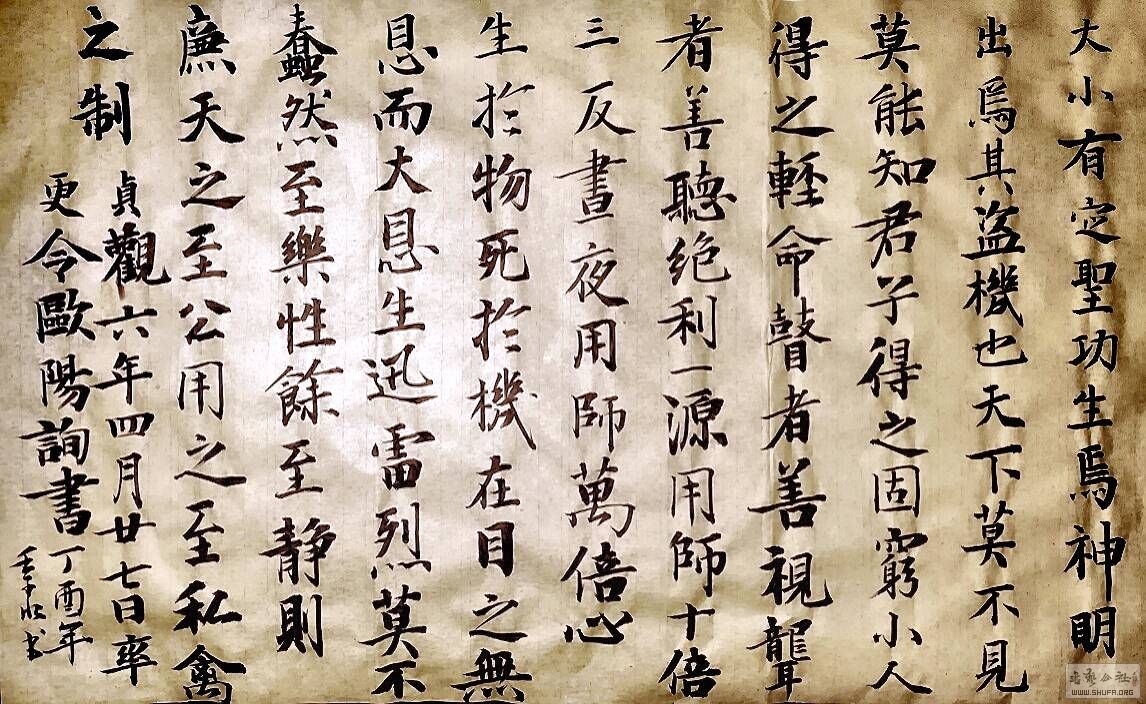 大小有定聖功生焉神明
出焉其盜機也天下莫不見
莫能知君子得之固窮小人
得之輕命瞽者善視聾
者善聽絕利一源用師十倍
三反晝夜用師萬倍心
生於物死於機在目之無
恩而大恩生迅雷烈莫不
蠢然至樂性餘至静則
廉天之至公用之至私禽
之制
貞觀六年四月廿七日率
更令歐陽詢書
丁酉年
书
WWW.SHUFA.ORG